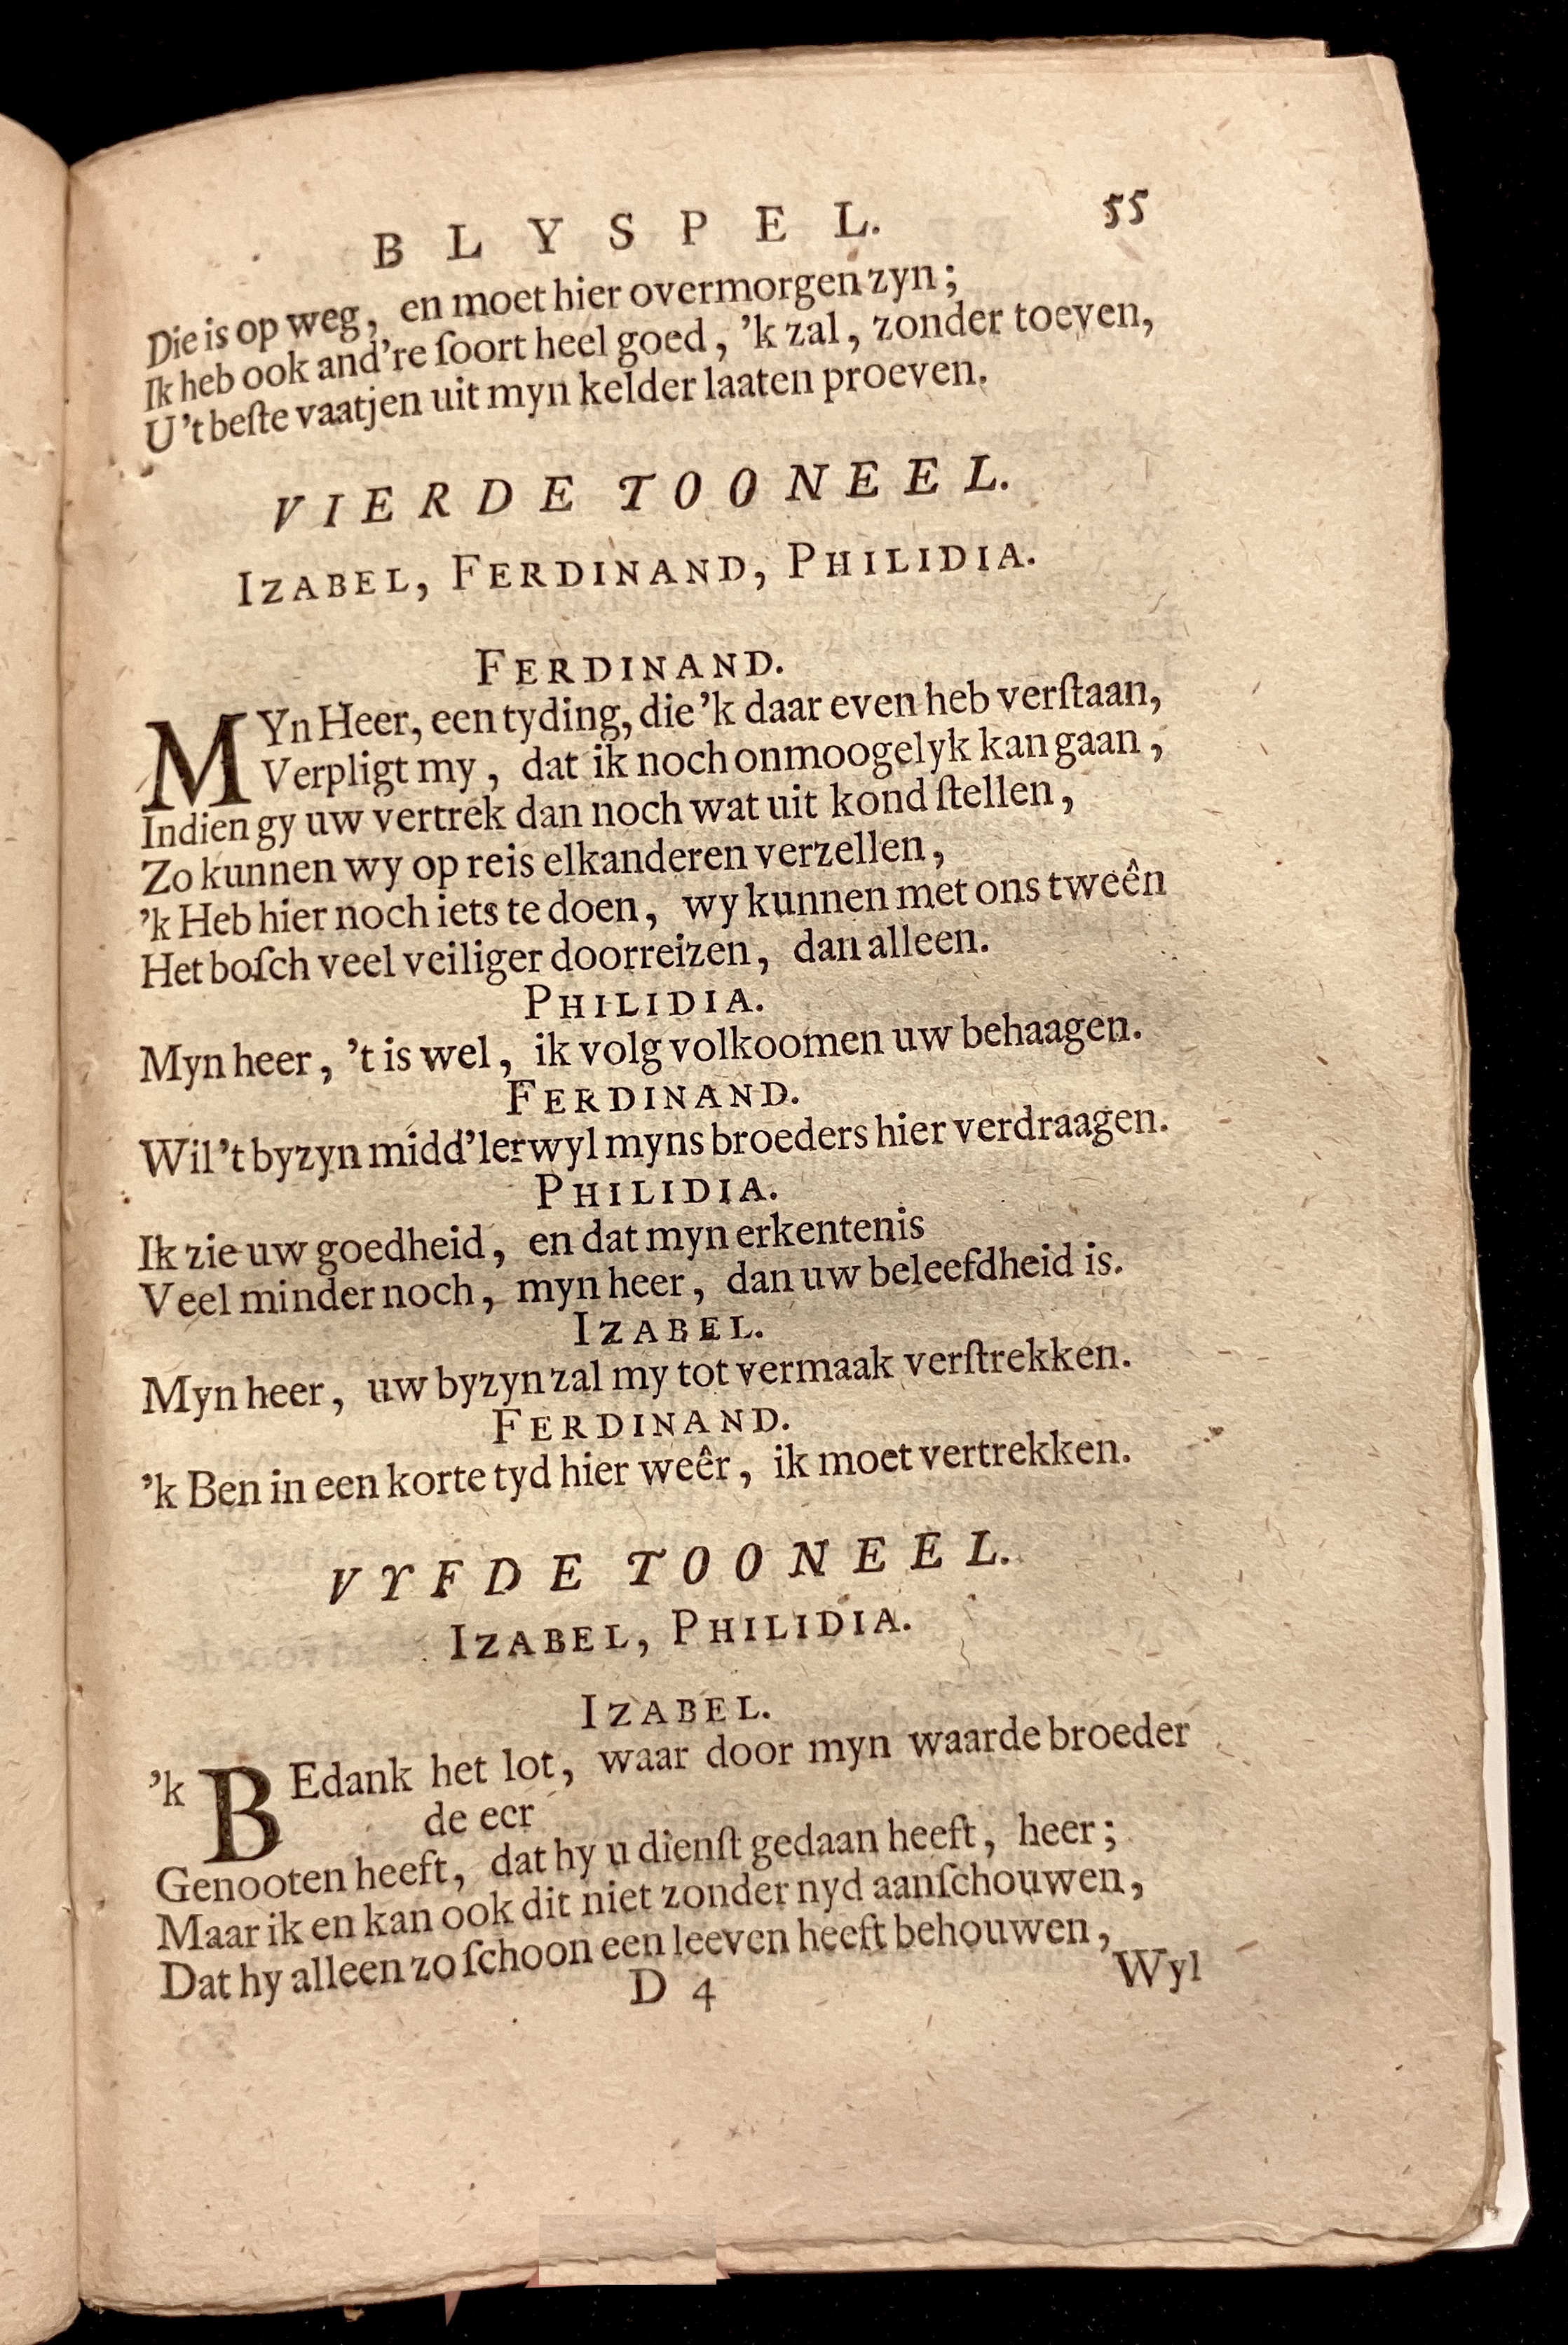 BLYSPEL. 55
Die is op weg, en moet hier overmorgen zyn;
Ik heb ook and're ſoort heel goed, 'k zal, zonder toeven,
U 't beſte vaatjen uit myn kelder laaten proeven.
VIERDE TOONEEL.
IZABEL, FERDINAND, PHILIDIA.
FERDINAND.
MYn Heer, een tyding, die 'k daar even heb verſtaan,
Verpligt my, dat ik noch onmoogelyk kan gaan,
Indien gy uw vertrek dan noch wat uit kond ſtellen,
Zo kunnen wy op reis elkanderen verzellen,
'k Heb hier noch iets te doen, wy kunnen met ons tweên
Het boſch veel veiliger doorreizen, dan alleen.
PHILIDIA.
Myn heer, 't is wel, ik volg volkoomen uw behaagen.
FERDINAND.
Wil 't byzyn midd'lerwyl myns broeders hier verdraagen.
PHILIDIA.
Ik zie uw goedheid, en dat myn erkentenis
Veel minder noch, myn heer, dan uw beleefdheid is.
IZABEL.
Myn heer, uw byzyn zal my tot vermaak verſtrekken.
FERDINAND.
'k Ben in een korte tyd hier weêr, ik moet vertrekken.
VYFDE TOONEEL.
IZABEL, PHILIDIA.
IZABEL.
'k BEdank het lot, waar door myn waarde broeder
de eer
Genooten heeft, dat hy u dienſt gedaan heeft, heer;
Maar ik en kan ook dit niet zonder nyd aanſchouwen,
Dat hy alleen zo ſchoon een leeven heeft behouwen,
D 4 Wyl